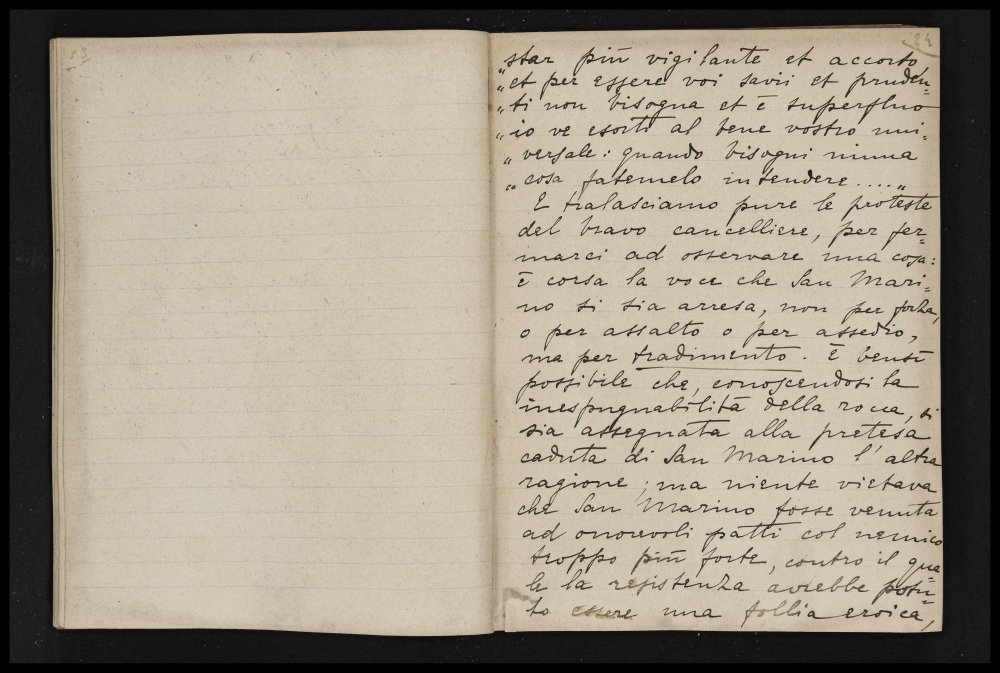 24
„ star più vigilante et accorto
„ et per essere voi savii et pruden=
„ ti non bisogna et è superfluo
„ io ve esorti al bene vostro uni=
„ versale: quando bisogni niuna
„ cosa fatemelo intendere .... „
E tralasciamo pure le proteste
del bravo cancelliere, per fer=
marci ad osservare una cosa:
è corsa la voce che San Mari=
no si sia arresa, non per forza,
o per assalto o per assedio,
ma per tradimento. È bensì
possibile che, conoscendosi la
inespugnabilità della rocca, si
sia assegnata alla pretesa
caduta di San Marino l'altra
ragione; ma niente vietava
che San Marino fosse venuta
ad onorevoli patti col nemico
troppo più forte, contro il qua=
le la resistenza avrebbe potu=
to essere una follia eroica,